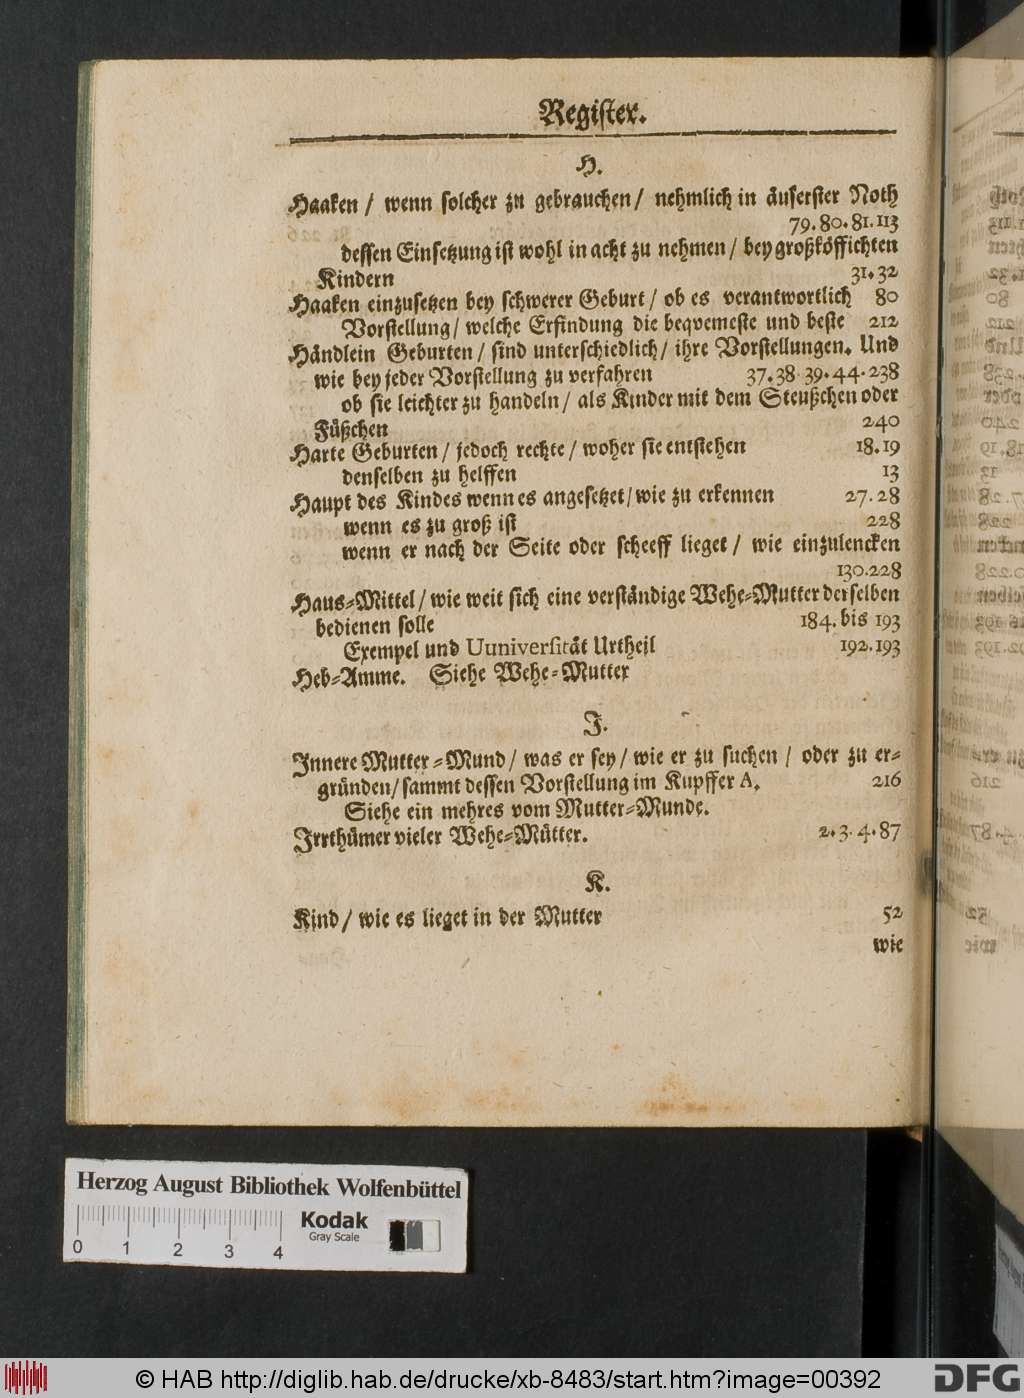 Register.
H.
Haaken / wenn solcher zu gebrauchen / nehmlich in äuserster Noth
79. 80. 81. 113
dessen Einsetzung ist wohl in acht zu nehmen / bey großköffichten
Kindern 31. 32
Haaken einzusetzen bey schwerer Geburt / ob es verantwortlich 80
Vorstellung / welche Erfindung die beqvemeste und beste 212
Händlein Geburten / sind unterschiedlich / ihre Vorstellungen. Und
wie bey jeder Vorstellung zu verfahren 37. 38. 39. 44. 238
ob sie leichter zu handeln / als Kinder mit dem Steußchen oder
Füßchen 240
Harte Geburten / jedoch rechte / woher sie entstehen 18. 19
denselben zu helffen 13
Haupt des Kindes wenn es angesetzet / wie zu erkennen 27. 28
wenn es zu groß ist 228
wenn er nach der Seite oder scheeff lieget / wie einzulencken
130. 228
Haus-Mittel / wie weit sich eine verständige Wehe-Mutter derselben
bedienen solle 184. bis 193
Exempel und Uuniversität Urtheil 192. 193
Heb-Amme. Siehe Wehe-Mutter
J.
Innere Mutter-Mund / was er sey / wie er zu suchen / oder zu er-
gründen / sammt dessen Vorstellung im Kupffer A. 216
Siehe ein mehres vom Mutter-Munde.
Irrthümer vieler Wehe-Mütter. 2. 3. 4. 87
K.
Kind / wie es lieget in der Mutter 52
wie
Herzog August Bibliothek Wolfenbüttel
Kodak
Gray Scale
0 1 2 3 4
© HAB http://diglib.hab.de/drucke/xb-8483/start.htm?image=00392
DFG